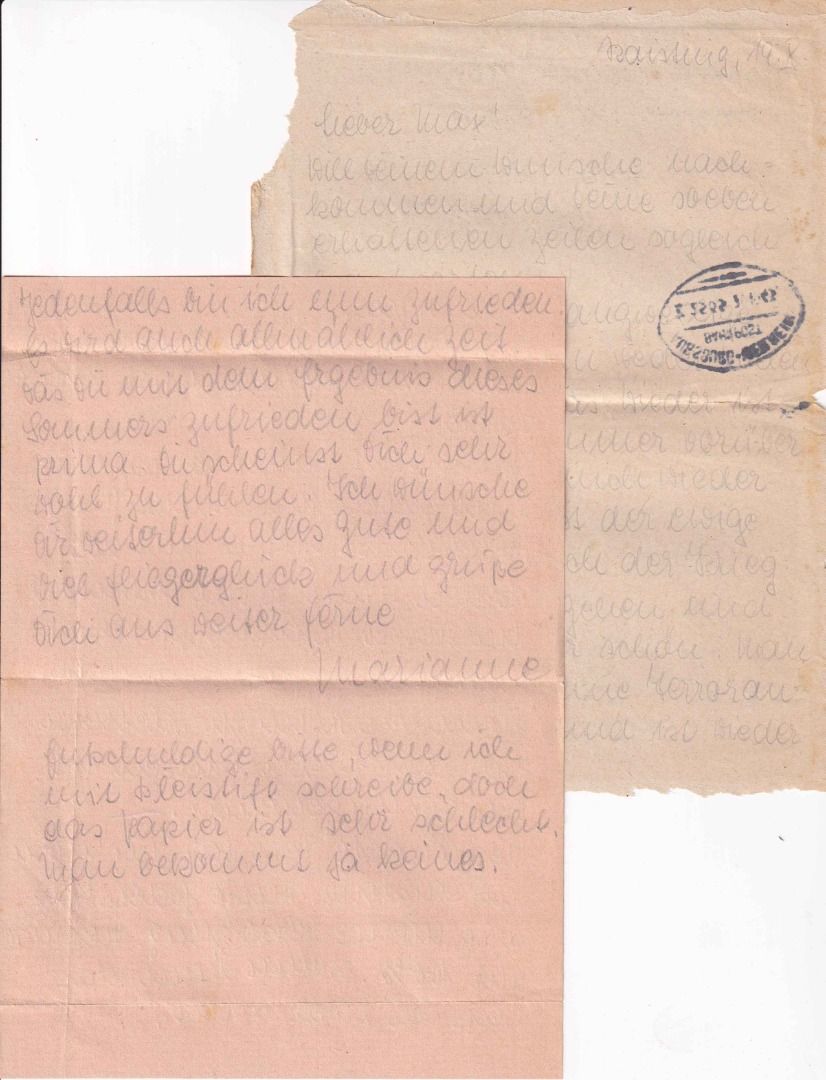 Raisting, 14.X
Lieber Max!
Will deinem Wunsche nach-
kommen und deine soeben
erhaltenen Zeilen sogleich
wieder ist
immer vorüber
noch wieder
der ewige
der Krieg
gehen und
schön. Man
Terroran-
und ist wieder
Jedenfalls bin ich nun zufrieden.
Es wird auch allmählich Zeit
das du mit dem Ergebnis dieses
Sommers zufrieden bist ist
prima. Du scheinst dich sehr
wohl zu fühlen. Ich wünsche
dir weiterhin alles gute und
viel fliegerglück und grüße
dich aus weiter ferne
Marianne
Entschuldige bitte, wenn ich
mit Bleistift schreibe, doch
das Papier ist sehr schlecht.
Man bekommt ja keines.